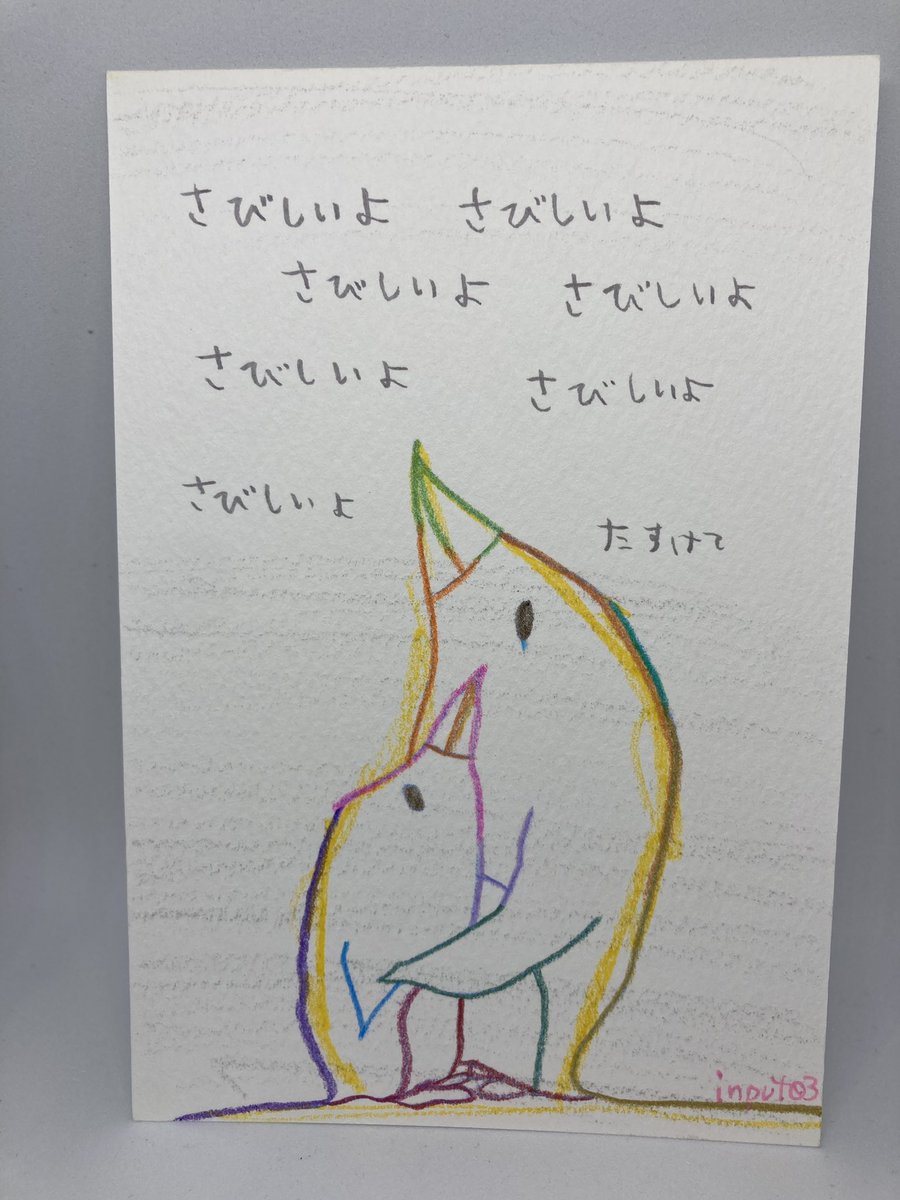 さびしいよ さびしいよ
さびしいよ さびしいよ
さびしいよ さびしいよ
さびしいよ
たすけて
input03